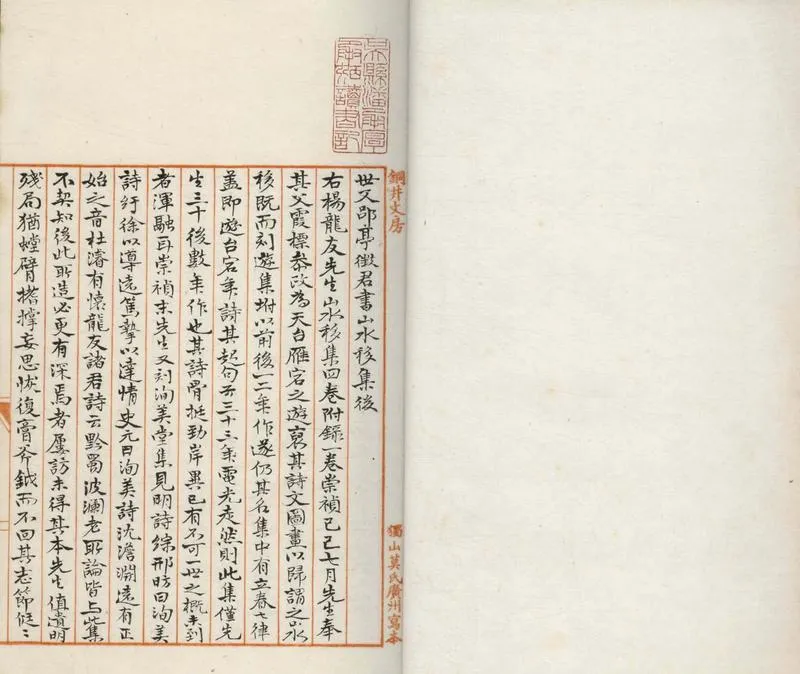 吳縣潘承厚
承弼讀書記
銅井文房
獨山莫氏廣州寫本
世父郘亭徵君書山水移集後
右楊龍友先生山水移集四卷附錄一卷崇禎己巳七月先生奉
其父霞標叅政為天台雁宕之遊裒其詩文圖畫以歸謂之山水
移既而刻遊集坿以前後一二年作遂仍其名集中有立春七律
葢即遊台宕年詩其起句云三十三年電光走然則此集僅先
生三十後數年作也其詩骨挺勁岸異已有不可一世之概未到
者渾融耳崇禎末先生又刻洵美堂集見明詩綜邢昉曰洵美
詩紆徐以導遠篤摯以達情史元曰洵美詩沈澹淵遠有正
始之音杜濬有懷龍友諸君詩云黔蜀波瀾老所論皆与此集
不契知後此所造必更有深焉者屢訪未得其本先生值遺明
殘局猶螳臂撐妄思恢復膏斧鉞而不回其志節促〻